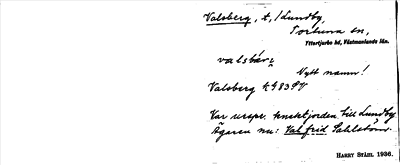 Valsberg, t, /Lundby,
Tortuna sn,
Yttertjurbo hd, Västmanlands län.
valsbär:
Nytt namn!
Valsberg
Var urspr. knektjorden till Lundby
Ägaren nu: Valfrid Sahlström.
HARRY STÅHL 1936.